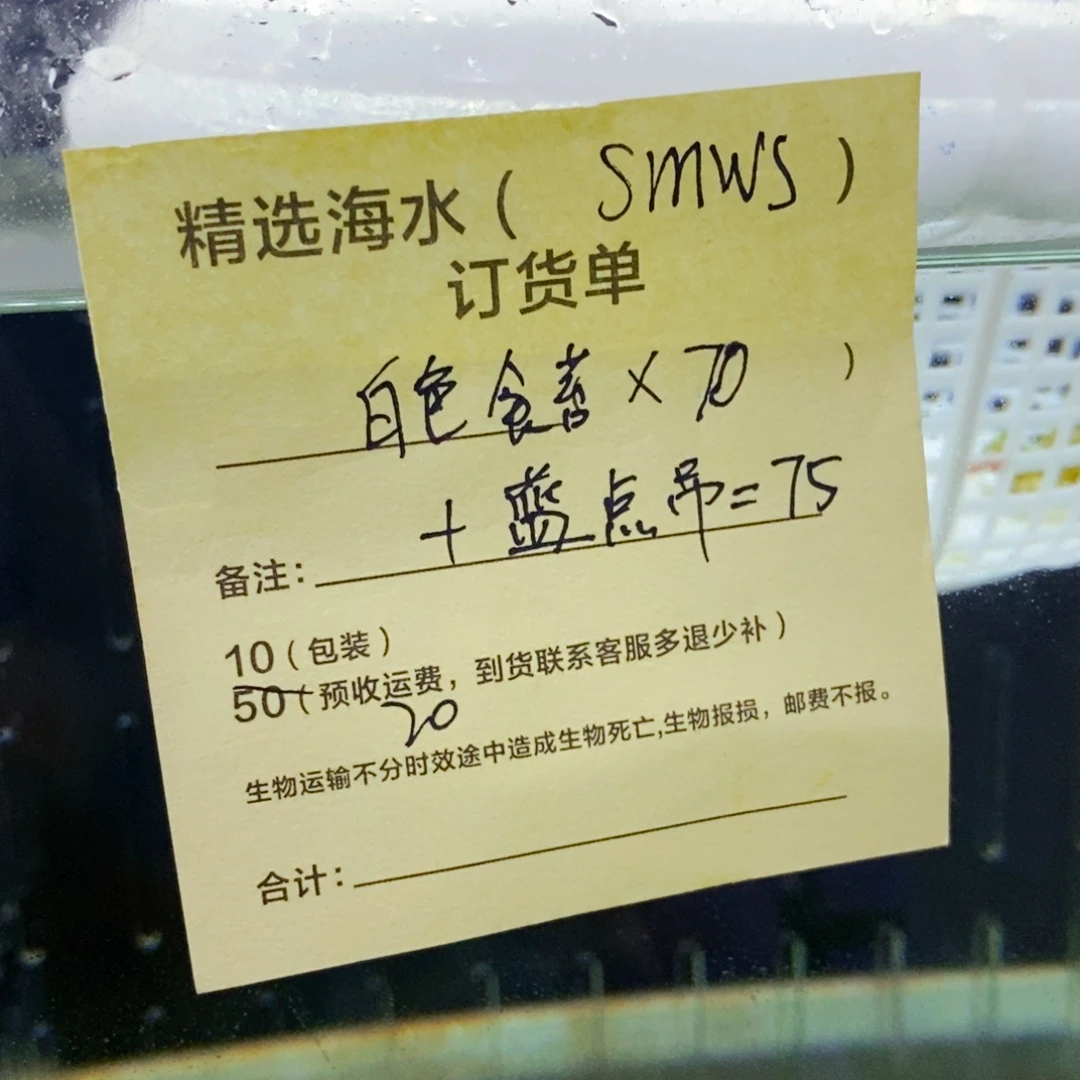 精选海水( SMWS )
订货单
白色食素×70 )
+蓝点吊=75
备注:
10(包装)
50(预收运费，到货联系客服多退少补)
20
生物运输不分时效途中造成生物死亡,生物报损，邮费不报。
合计: